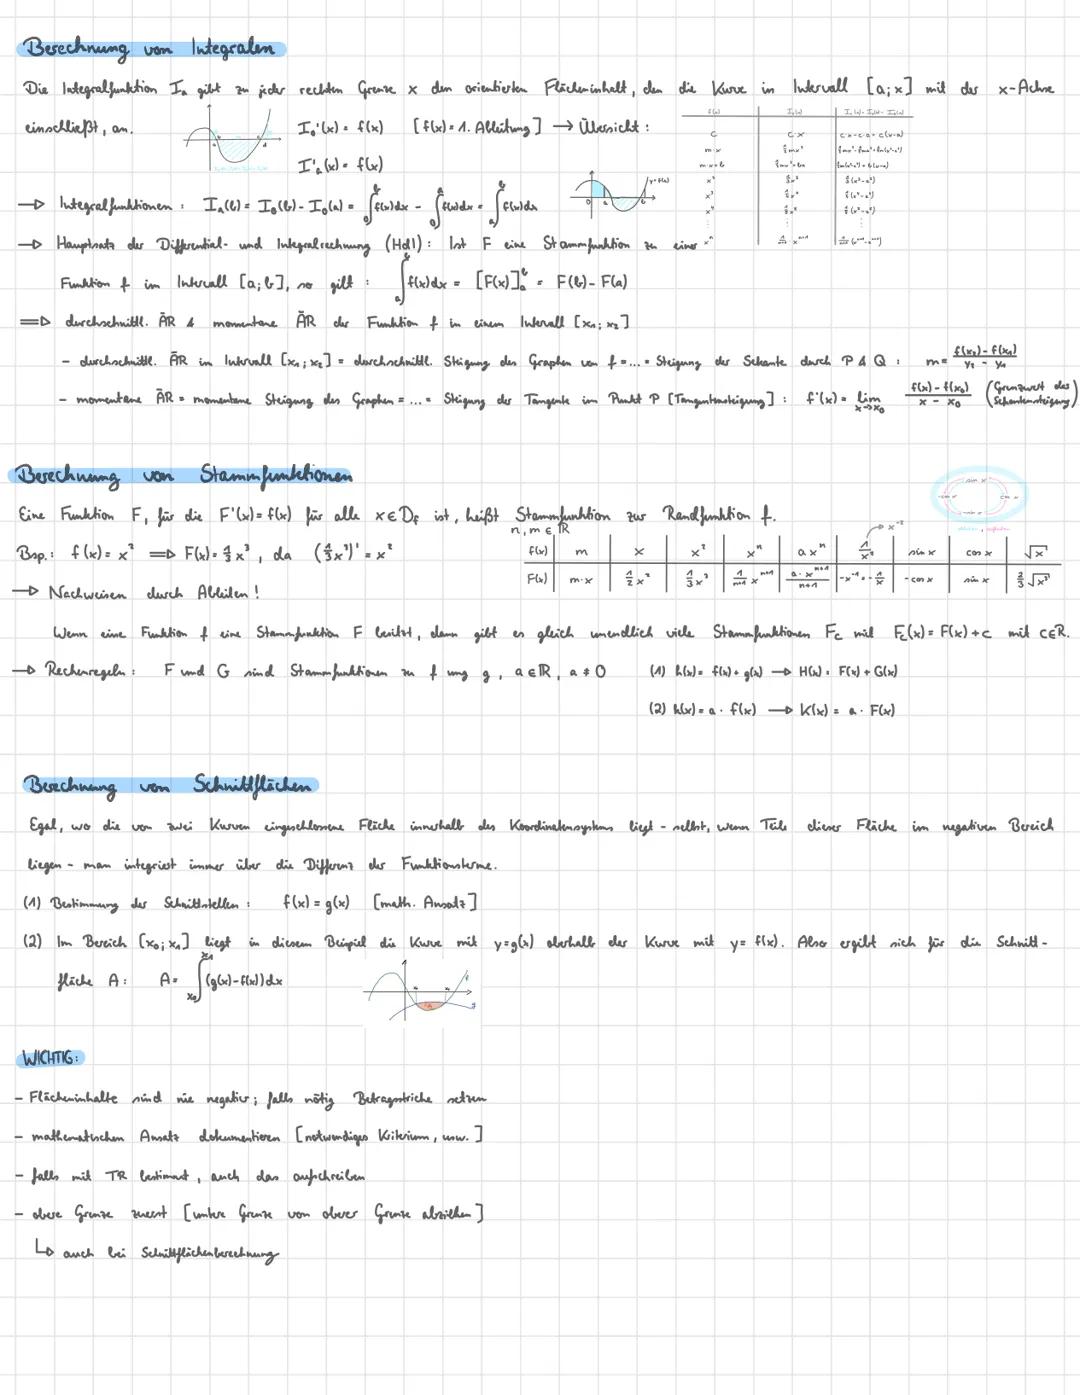 Berechnung von Integralen
Die Integralfunktion Iₐ gibt zu jeder rechten Grenze x den orientierten Flächeninhalt, den die Kurve im Intervall [a;x] mit der x-Achse
einschließt, an.
I₀'(x) = f(x) [f(x) = 1. Ableitung] → Übersicht:
I'ₐ(x) = f(x)
f(x) | I₀(x) | Iₐ(x) = I₀(x) - I₀(a)
c | c·x | c·x-c·a = c(x-a)
→ Integralfunktionen: Iₐ(b) = I₀(b) - I₀(a) = ₀∫ᵇ f(x)dx - ₀∫ᵃ f(x)dx = ₐ∫ᵇ f(x)dx
y=f(x)
→ Hauptsatz der Differential- und Integralrechnung (HdI): Ist F eine Stammfunktion zu einer
Funktion f im Intervall [a;b], so gilt: ₐ∫ᵇ f(x)dx = [F(x)]ₐᵇ = F(b) - F(a)
⇒ durchschnittl. ÄR & momentane ÄR der Funktion f in einem Intervall [x₁; x₂]
- durchschnittl. ÄR im Intervall [x₁; x₂] = durchschnittl. Steigung des Graphen von f = ... = Steigung der Sekante durch P & Q: m = (f(x₂) - f(x₁))/(y₂ - y₁)
- momentane ÄR = momentane Steigung des Graphen = ... = Steigung der Tangente im Punkt P [Tangentensteigung]: f'(x) = lim x→x₀ (f(x) - f(x₀))/(x - x₀) (Grenzwert der Sekantensteigung)
Berechnung von Stammfunktionen
sin x
-cos x cos x
-sin x
Eine Funktion F, für die F'(x) = f(x) für alle x∈D_f ist, heißt Stammfunktion zur Randfunktion f.
n, m ∈ ℝ
→ x⁻²
Bsp.: f(x) = x² ⇒ F(x) = 1/3 x³, da (1/3 x³)' = x²
f(x) | m | x | x² | xⁿ | axⁿ | 1/x² | sin x | cos x | √x
F(x) | m·x | 1/2 x² | 1/3 x³ | 1/(n+1) xⁿ⁺¹ | (a·xⁿ⁺¹)/(n+1) | -x⁻¹ = -1/x | -cos x | sin x | 2/3 √x³
→ Nachweisen durch Ableiten!
Wenn eine Funktion f eine Stammfunktion F besitzt, dann gibt es gleich unendlich viele Stammfunktionen F_C mit F_C(x) = F(x) + c mit C∈ℝ.
→ Rechenregeln: F und G sind Stammfunktionen zu f ung g, a∈ℝ, a ≠ 0 (1) h(x) = f(x) + g(x) → H(x) = F(x) + G(x)
(2) k(x) = a · f(x) → K(x) = a · F(x)
Berechnung von Schnittflächen
Egal, wo die von zwei Kurven eingeschlossene Fläche innerhalb des Koordinatensystems liegt - selbst, wenn Teile dieser Fläche im negativen Bereich
liegen - man integriert immer über die Differenz der Funktionsterme.
(1) Bestimmung der Schnittstellen: f(x) = g(x) [math. Ansatz]
(2) Im Bereich [x₀; x₁] liegt in diesem Beispiel die Kurve mit y=g(x) oberhalb der Kurve mit y = f(x). Also ergibt sich für die Schnitt-
fläche A: A = x₀∫x₁ (g(x) - f(x))dx
WICHTIG:
- Flächeninhalte sind nie negativ; falls nötig Betragsstriche setzen
- mathematischen Ansatz dokumentieren [notwendiges Kriterium, usw.]
- falls mit TR bestimmt, auch das aufschreiben
- obere Grenze zuerst [untere Grenze von oberer Grenze abziehen]
↳ auch bei Schnittflächenberechnung